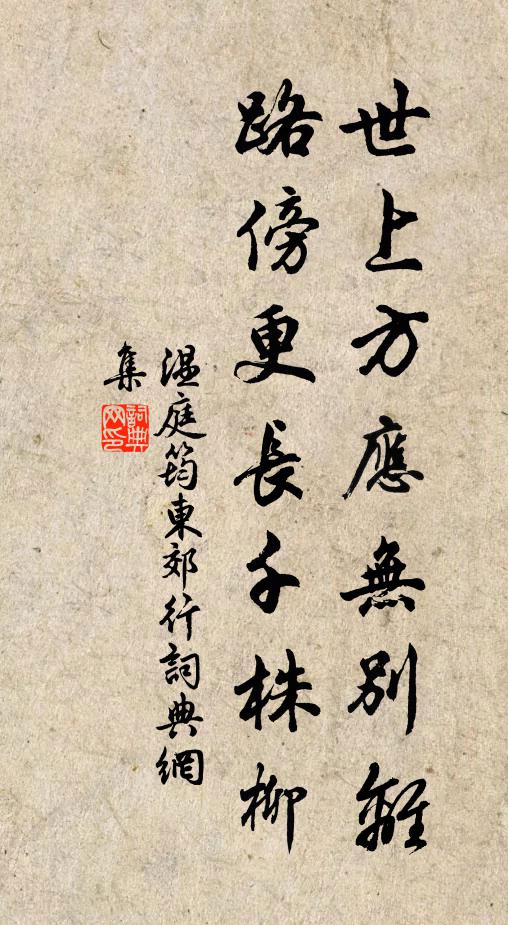 世上方應無別離
路傍更長千株柳
温庭筠東郊行詞典網
集
詞典
网印